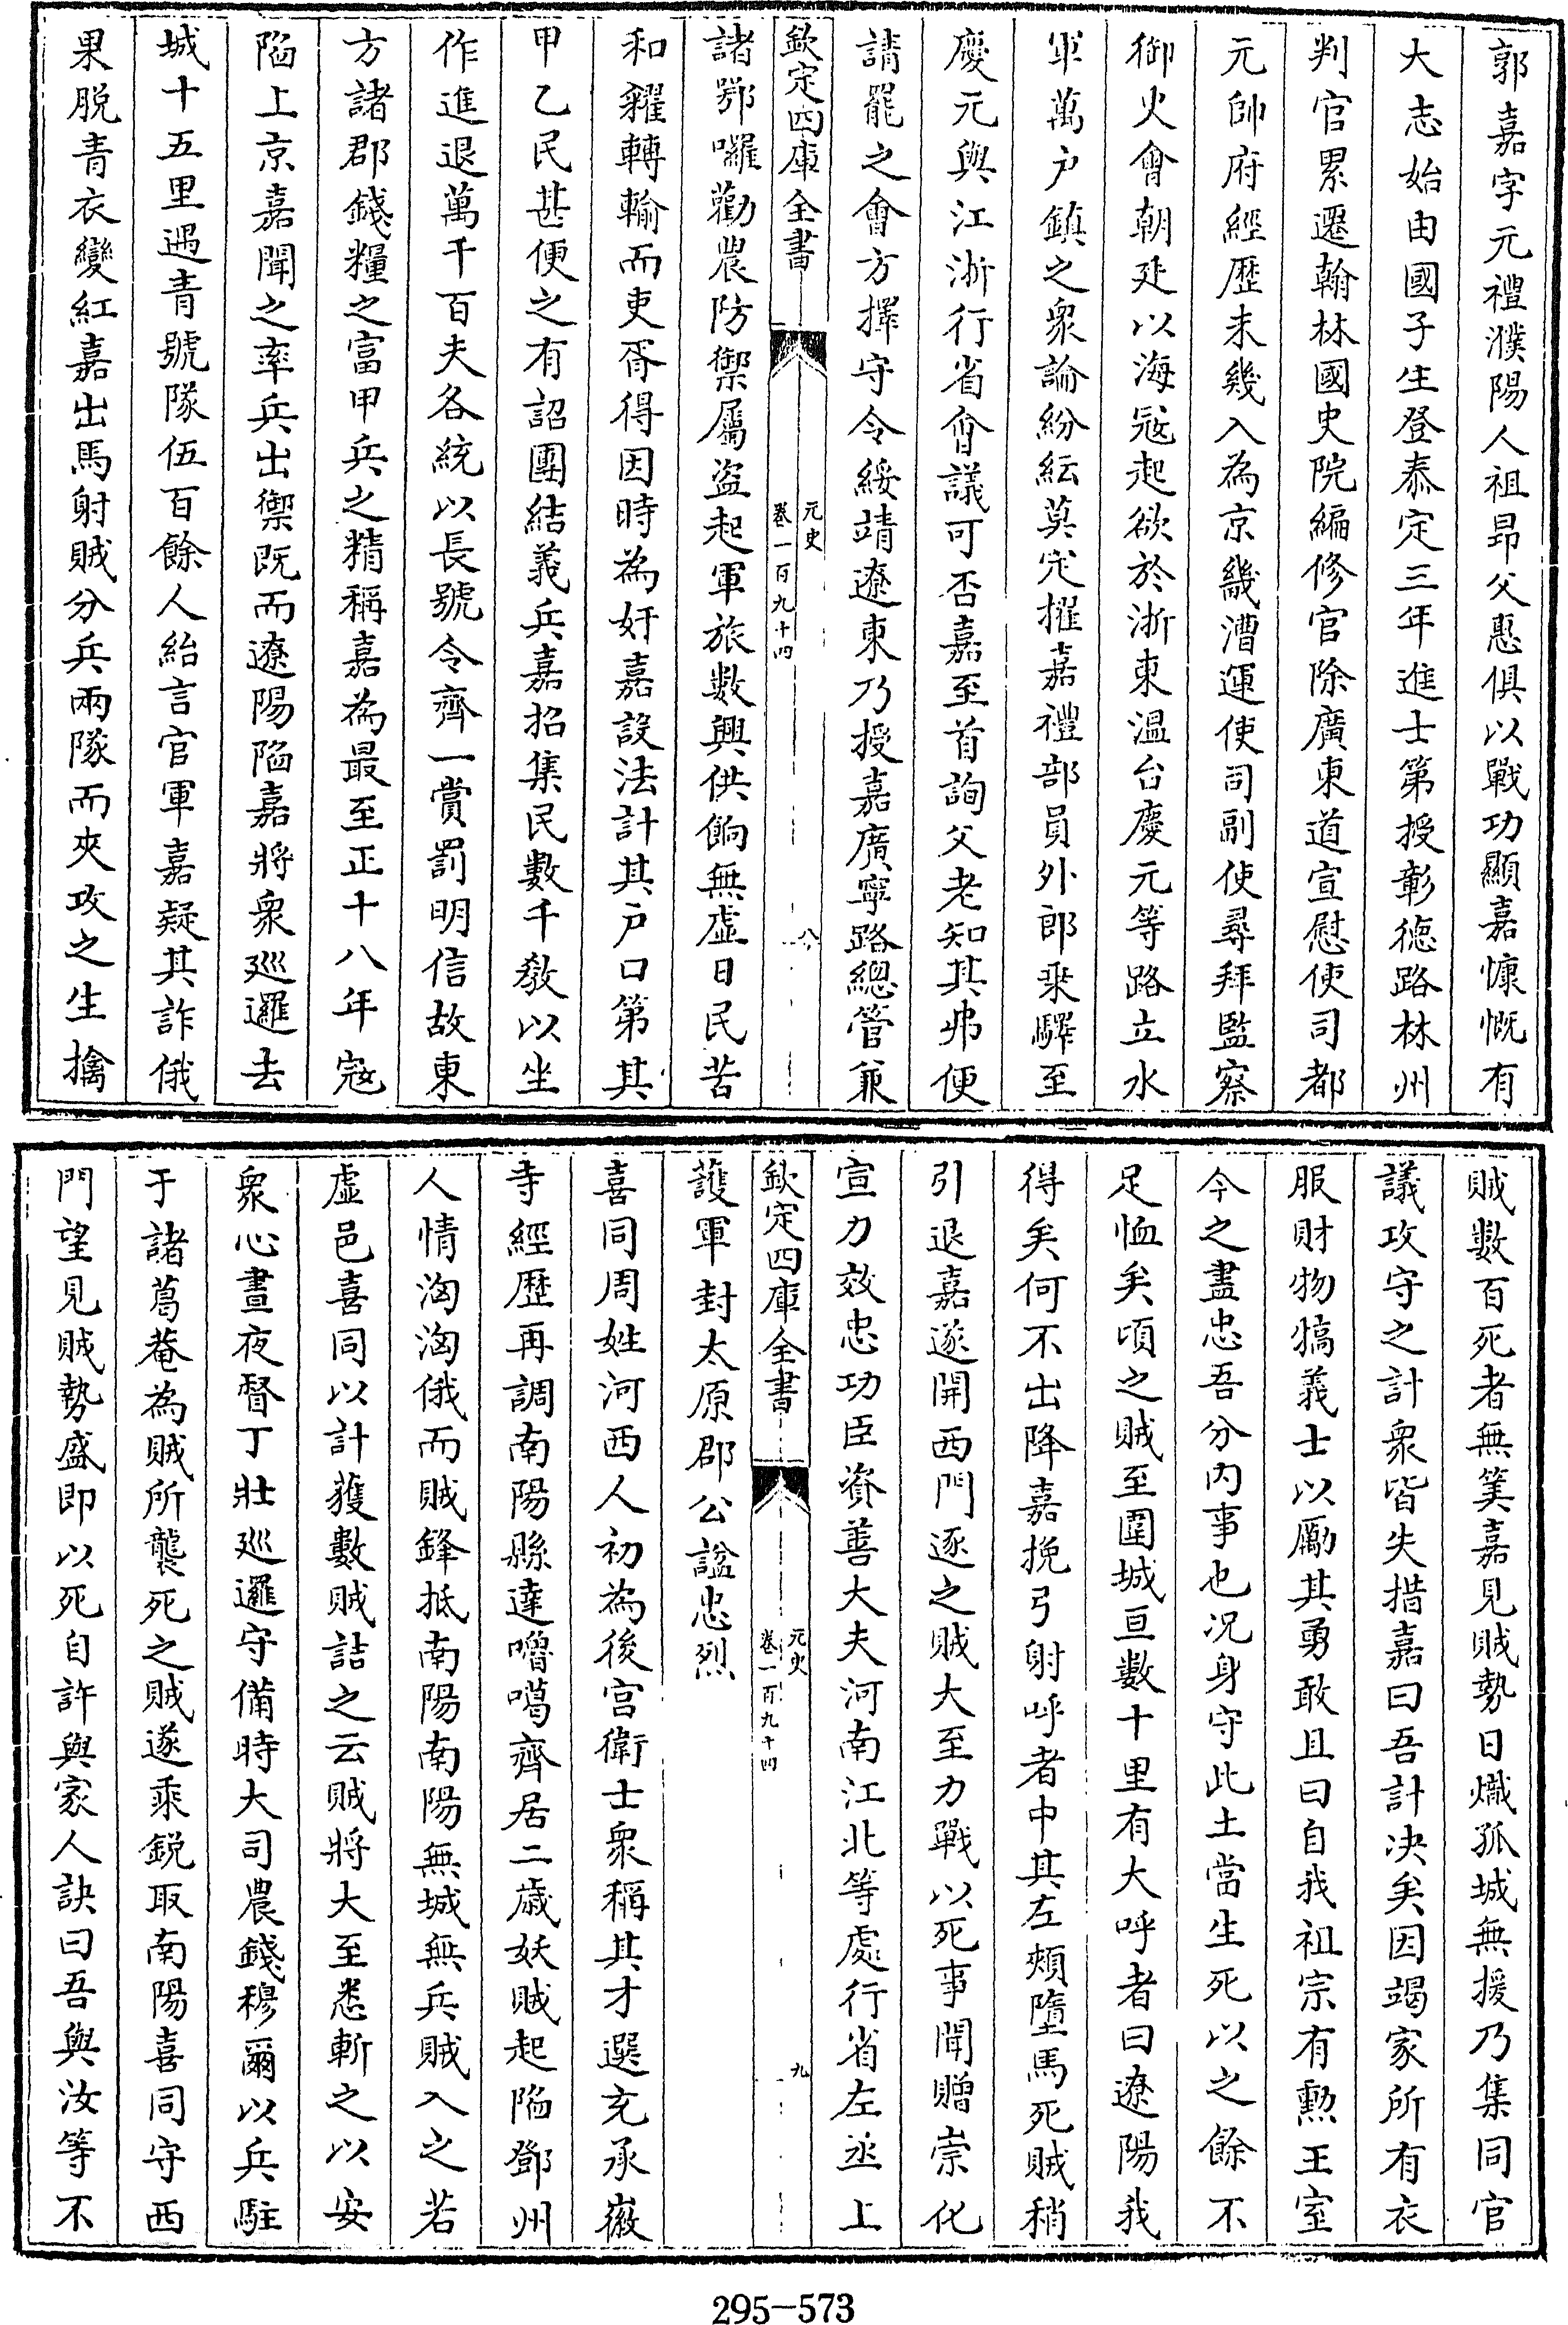 郭嘉字元禮濮陽人祖昂父惠俱以戰功顯嘉慷慨有
大志始由國子生登泰定三年進士第授彰徳路林州
判官累遷翰林國史院編修官除廣東道宣慰使司都
元帥府經歷未幾入為京畿漕運使司副使尋拜監察
御史會朝廷以海宼起欲於浙東温台慶元等路立水
軍萬户鎮之衆論紛紜莫定擢嘉禮部員外郎乘驛至
慶元與江浙行省會議可否嘉至首詢父老知其弗便
請罷之會方擇守令綏靖遼東乃授嘉廣寧路總管兼
欽定四庫全書
元史
卷一百九十四
八
諸鄂囉勸農防禦屬盗起軍旅數興供餉無虚日民苦
和糴轉輸而吏胥得因時為奸嘉設法計其户口第其
甲乙民甚便之有詔團結義兵嘉招集民數千教以坐
作進退萬千百夫各統以長號令齊一賞罰明信故東
方諸郡錢糧之富甲兵之精稱嘉為最至正十八年宼
陷上京嘉聞之率兵出禦既而遼陽陷嘉將衆廵邏去
城十五里遇青號隊伍百餘人紿言官軍嘉疑其詐俄
果脱青衣變紅嘉出馬射賊分兵兩隊而夾攻之生擒
賊數百死者無筭嘉見賊勢日熾孤城無援乃集同官
議攻守之計衆皆失措嘉曰吾計决矣因竭家所有衣
服財物犒義士以勵其勇敢且曰自我祖宗有勲王室
今之盡忠吾分内事也况身守此土當生死以之餘不
足恤矣頃之賊至圍城亘數十里有大呼者曰遼陽我
得矣何不出降嘉挽弓射呼者中其左頰墮馬死賊稍
引退嘉遂開西門逐之賊大至力戰以死事聞贈崇化
宣力效忠功臣資善大夫河南江北等處行省左丞上
欽定四庫全書
元史
卷一百九十四
九
護軍封太原郡公諡忠烈
喜同周姓河西人初為後宫衛士衆稱其才選充承徽
寺經歷再調南陽縣達嚕噶齊居二歳妖賊起陷鄧州
人情洶洶俄而賊鋒抵南陽南陽無城無兵賊入之若
虚邑喜同以計獲數賊詰之云賊將大至悉斬之以安
衆心晝夜督丁壯廵邏守備時大司農錢穆爾以兵駐
于諸葛菴為賊所襲死之賊遂乘鋭取南陽喜同守西
門望見賊勢盛即以死自許與家人訣曰吾與汝等不
295-573